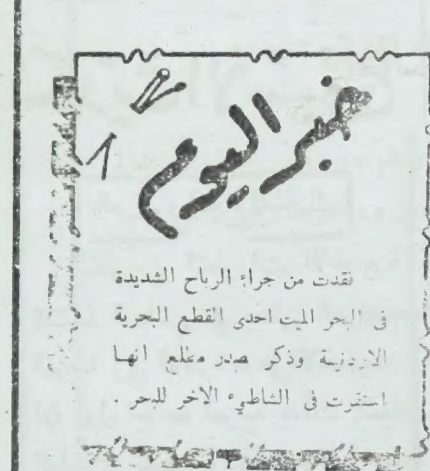 خبر اليوم
نقدت من جراء الرياح الشديدة
في البحر الميت احدى القطع البحرية
الاردنية وذكر مصدر مطلع انها
استقرت في الشاطيء الاخر للبحر .